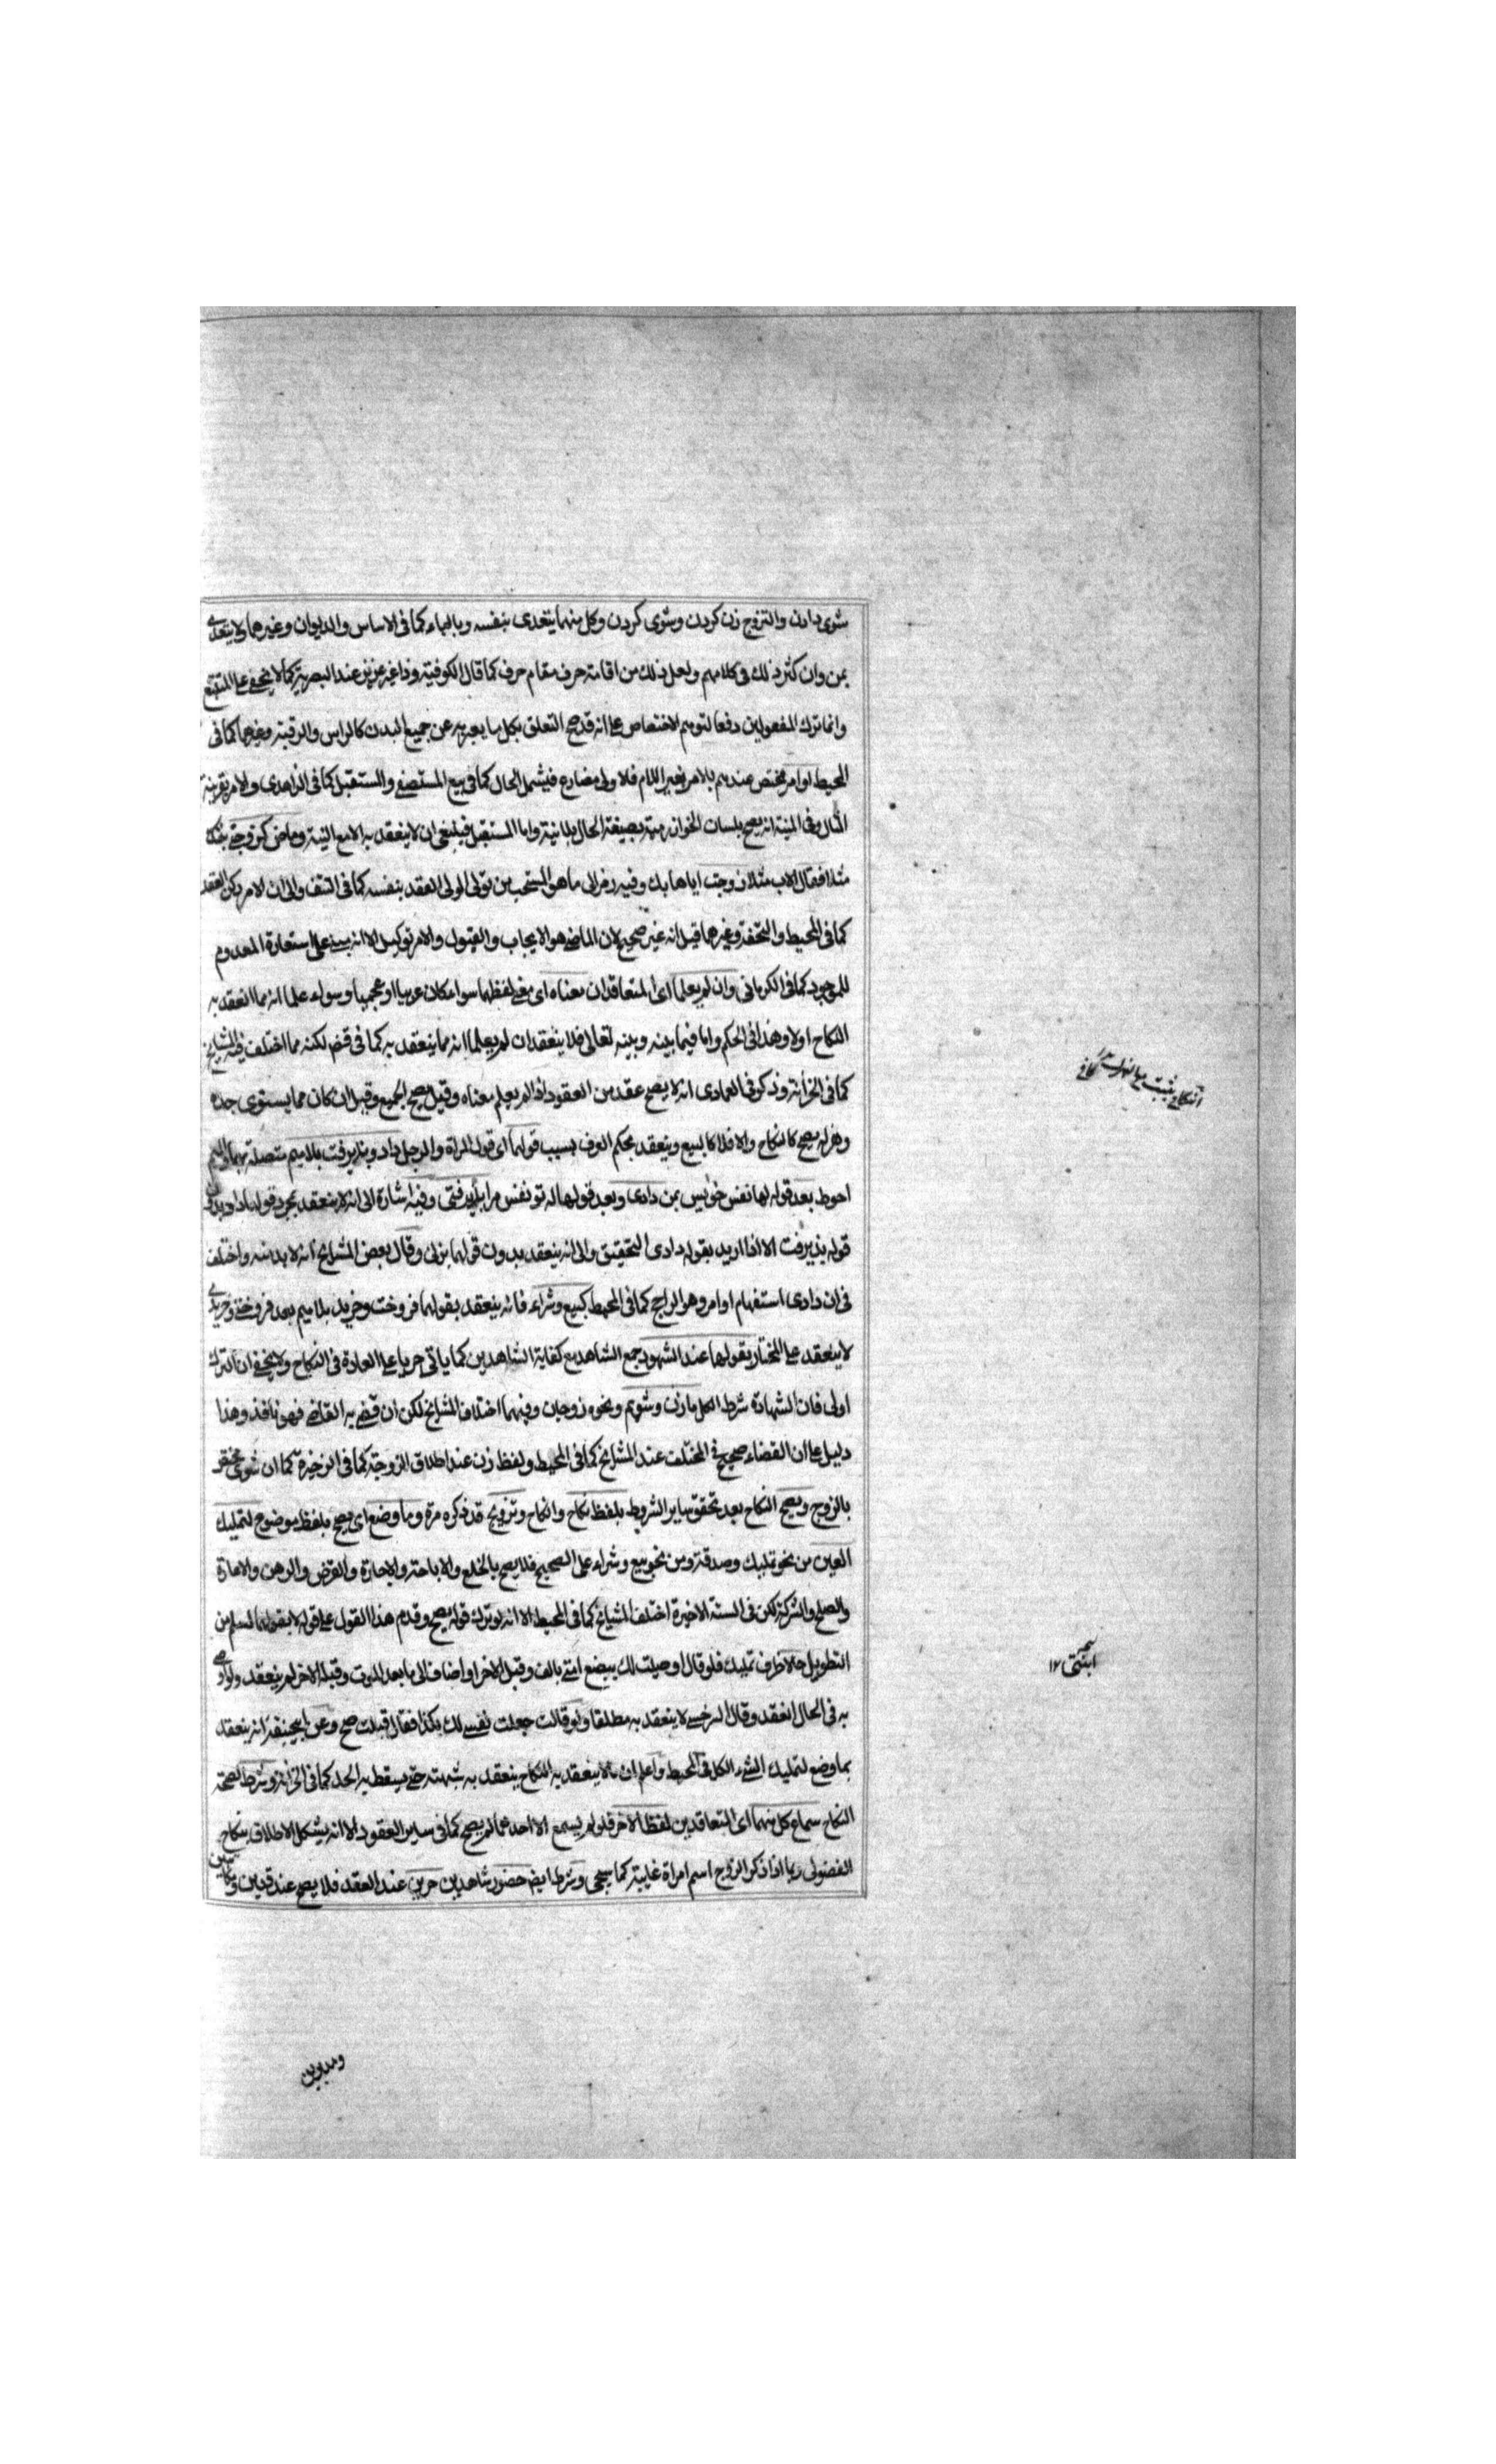 شوى دادن والتزوج زن كردن وشوى كردن وكل منهما يتعدى بنفسه وبالباء كما فى الاساس والديوان وغيرهما ولا يتعدى
بمن وان كثر ذلك فى كلامهم ولعل ذلك من اقامة حرف مقام حرف كما قال الكوفية وذا غير عزيز عند البصرية كما لا يخفى على المتتبع
وانما ترك المفعولين دفعا لتوهم الاختصاص على انه قد صح التعلق بكل ما يعبر به عن جميع البدن كالراس والرقبة وغيرهما كما فى
المحيط او امر مختص عندهم بالامر بغير اللام فلا ولى مضارع فيشمل الحال كما فى بيع المستصفى والمستقبل كما فى الزاهدى والامر بقرينة
المثال وفى المنية انه يصح بلسان بصيغة الحال بلا نية واما المستقبل فينبغى ان لا ينعقد به الا مع النية وماض كزوجنى بنتك
مثلا فقال الاب مثلا زوجت اياها بك وفيه رمز الى ما هو المستحب من تولى الولى العقد بنفسه كما فى النتف والى ان الامر ركن العقد
كما فى المحيط والتحفة وغيرهما قيل انه غير صحيح لان الماضى هو الايجاب والقبول والامر توكيل الا انه يبنى على استعارة المعدوم
للموجود كما فى الكرمانى وان لم يعلما اى المتعاقدان معناه اى معنى لفظهما سواء كان عربيا او عجميا وسواء علما انه مما انعقد به
النكاح اولا وهذا فى الحكم واما فيما بينه وبينه تعالى فلا ينعقد ان لم يعلما انه مما ينعقد به كما فى قضى لكنه مما اختلف فيه المشايخ
كما فى الخزانة وذكر فى العمادى انه لا يصح عقد من العقود اذا لم يعلم معناه وقيل يصح الجميع وقيل ان كان مما يستوى جده
وهزله يصح كالنكاح والا فلا كالبيع وينعقد بحكم العرف بسبب قولهما اى قول المراة والرجل داد وپذيرفت بلا ميم متصلة بهما والميم
احوط بعد قوله لها نفس خويس بمن دادى وبعد قولها له تو نفس مرا پذيرفتى وفيه اشارة الى انه لا ينعقد بمجرد قولها داد وبدون
قوله پذيرفت الا اذا اريد بقوله دادى التحقيق والى انه ينعقد بدون قولها بزنى وقال بعض المشايخ انه لا بد منه واختلف
فى ان دادى استفهام او امر وهو الراجح كما فى المحيط كبيع وشراء فانه ينعقد بقولهما فروخت وخريد بلا ميم بعد فروختى وخريدى
لا ينعقد على المختار بقولهما عند الشهود جمع الشاهد مع كفاية الشاهدين كما ياتى جريا على العادة فى النكاح ولا يخفى ان الترك
اولى فان الشهادة شرط الكل ما زن وشويم ونحوه زوجان وفيهما اختلاف المشايخ لكن ان قضى به القاضى فهو نافذ وهذا
دليل على ان القضاء صحيح فى المختلف عند المشايخ كما فى المحيط ولفظ زن عند اطلاق الزوجة كما فى الذخيرة كما ان شوى مختص
بالزوج ويصح النكاح بعد تحقق ساير الشروط بلفظ نكاح وانكاح وتزويج قد ذكره مرة وما وضع اى يصح بلفظ موضوع لتمليك
العين من نحو تمليك وصدقة ومن نحو بيع وشراء على الصحيح فلا يصح بالخلع والاباحة والاجارة والقرض والرهن والاعارة
والصلح والشركة لكن فى الستة الاخيرة اختلف المشايخ كما فى المحيط الا انه لو ترك قوله يصح وقدم هذا القول على قوله لا بقولهما لسلم من
التطويل حالا ظرف تمليك فلو قال اوصيت لك ببضع امتى بالف وقبل الاخر او اضاف الى ما بعد الموت وقبله الاخر لم ينعقد ولو اوصى
به فى الحال انعقد وقال السرخسى لا ينعقد به مطلقا ولو قالت جعلت نفسى لك بكذا فقال قبلت صح وعن ابى حنيفة انه ينعقد
بما وضع لتمليك الشىء الكل فى المحيط واعلم ان ما لا ينعقد به النكاح ينعقد به شبهة حتى يسقط به الحد كما فى الخزانة وشرط لصحة
النكاح سماع كل منهما اى المتعاقدين لفظ الاخر فلو لم يسمع الا احدهما لم يصح كما فى ساير العقود الا انه يشكل الاطلاق بنكاح
الفضولى ربما اذا ذكر الزوج اسم امراة غايبة كما سيجى وشرط ايض حضور شاهدين حرين عند العقد فلا يصح عند قنين ومكاتبين
ومدبرين